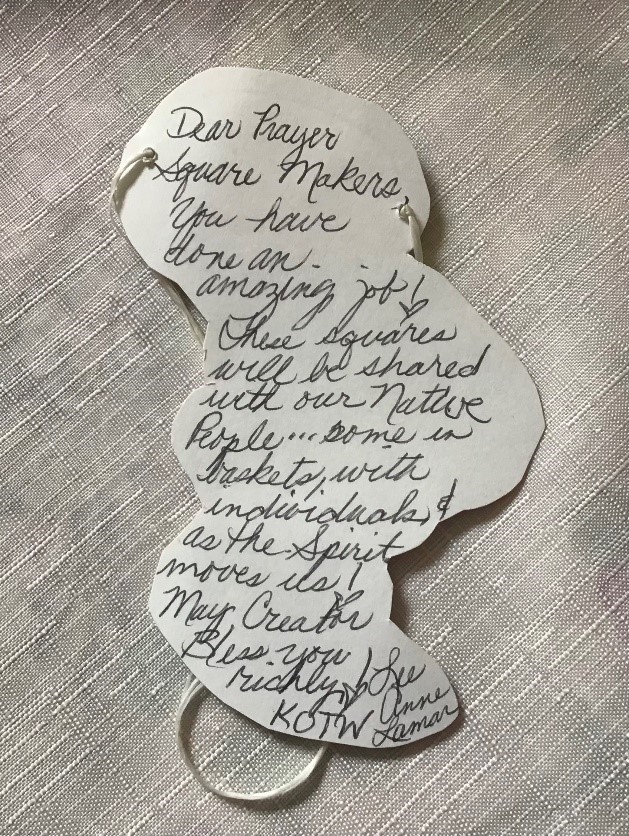 Dear Prayer
Square Makers,
You have
done an
amazing job!
These squares
will be shared
with our Native
People...some in
baskets, with
individuals, &
as the Spirit
moves us!
May Creator
Bless you
richly! Lee
KOTW Anne
Lamar